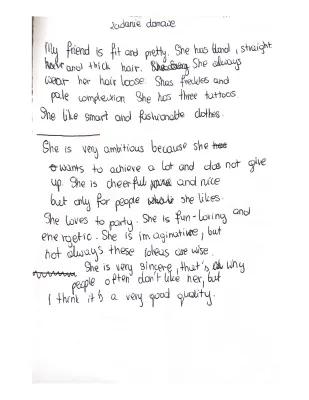 Zadanie domowe
My friend is fit and pretty. She has blond, straight
hair and thick hair. She always
wear her hair loose. Shas freckles and
pale complexion. She has three tattoos
She like smart and fashionable clothes.
She is very ambitious because she
wants to achieve a lot and does not give
up. She is cheerful and nice
but only for people she likes.
She loves to party. She is fun-loving and
energetic. She is imaginative, but
not always these ideas are wise.
She is very sincere, that's why
people often don't like her, but
I think it's a very good quality.